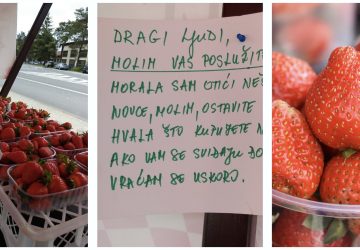 DRAGI LJUDI,
MOLIM VAS POSLUŽITE
MORALA SAM OTIĆI NEŠ
NOVCE, MOLIM, OSTAVITE
HVALA ŠTO KUPUJETE
AKO VAM SE SVIĐAJU DO
VRAĆAM SE USKORO.